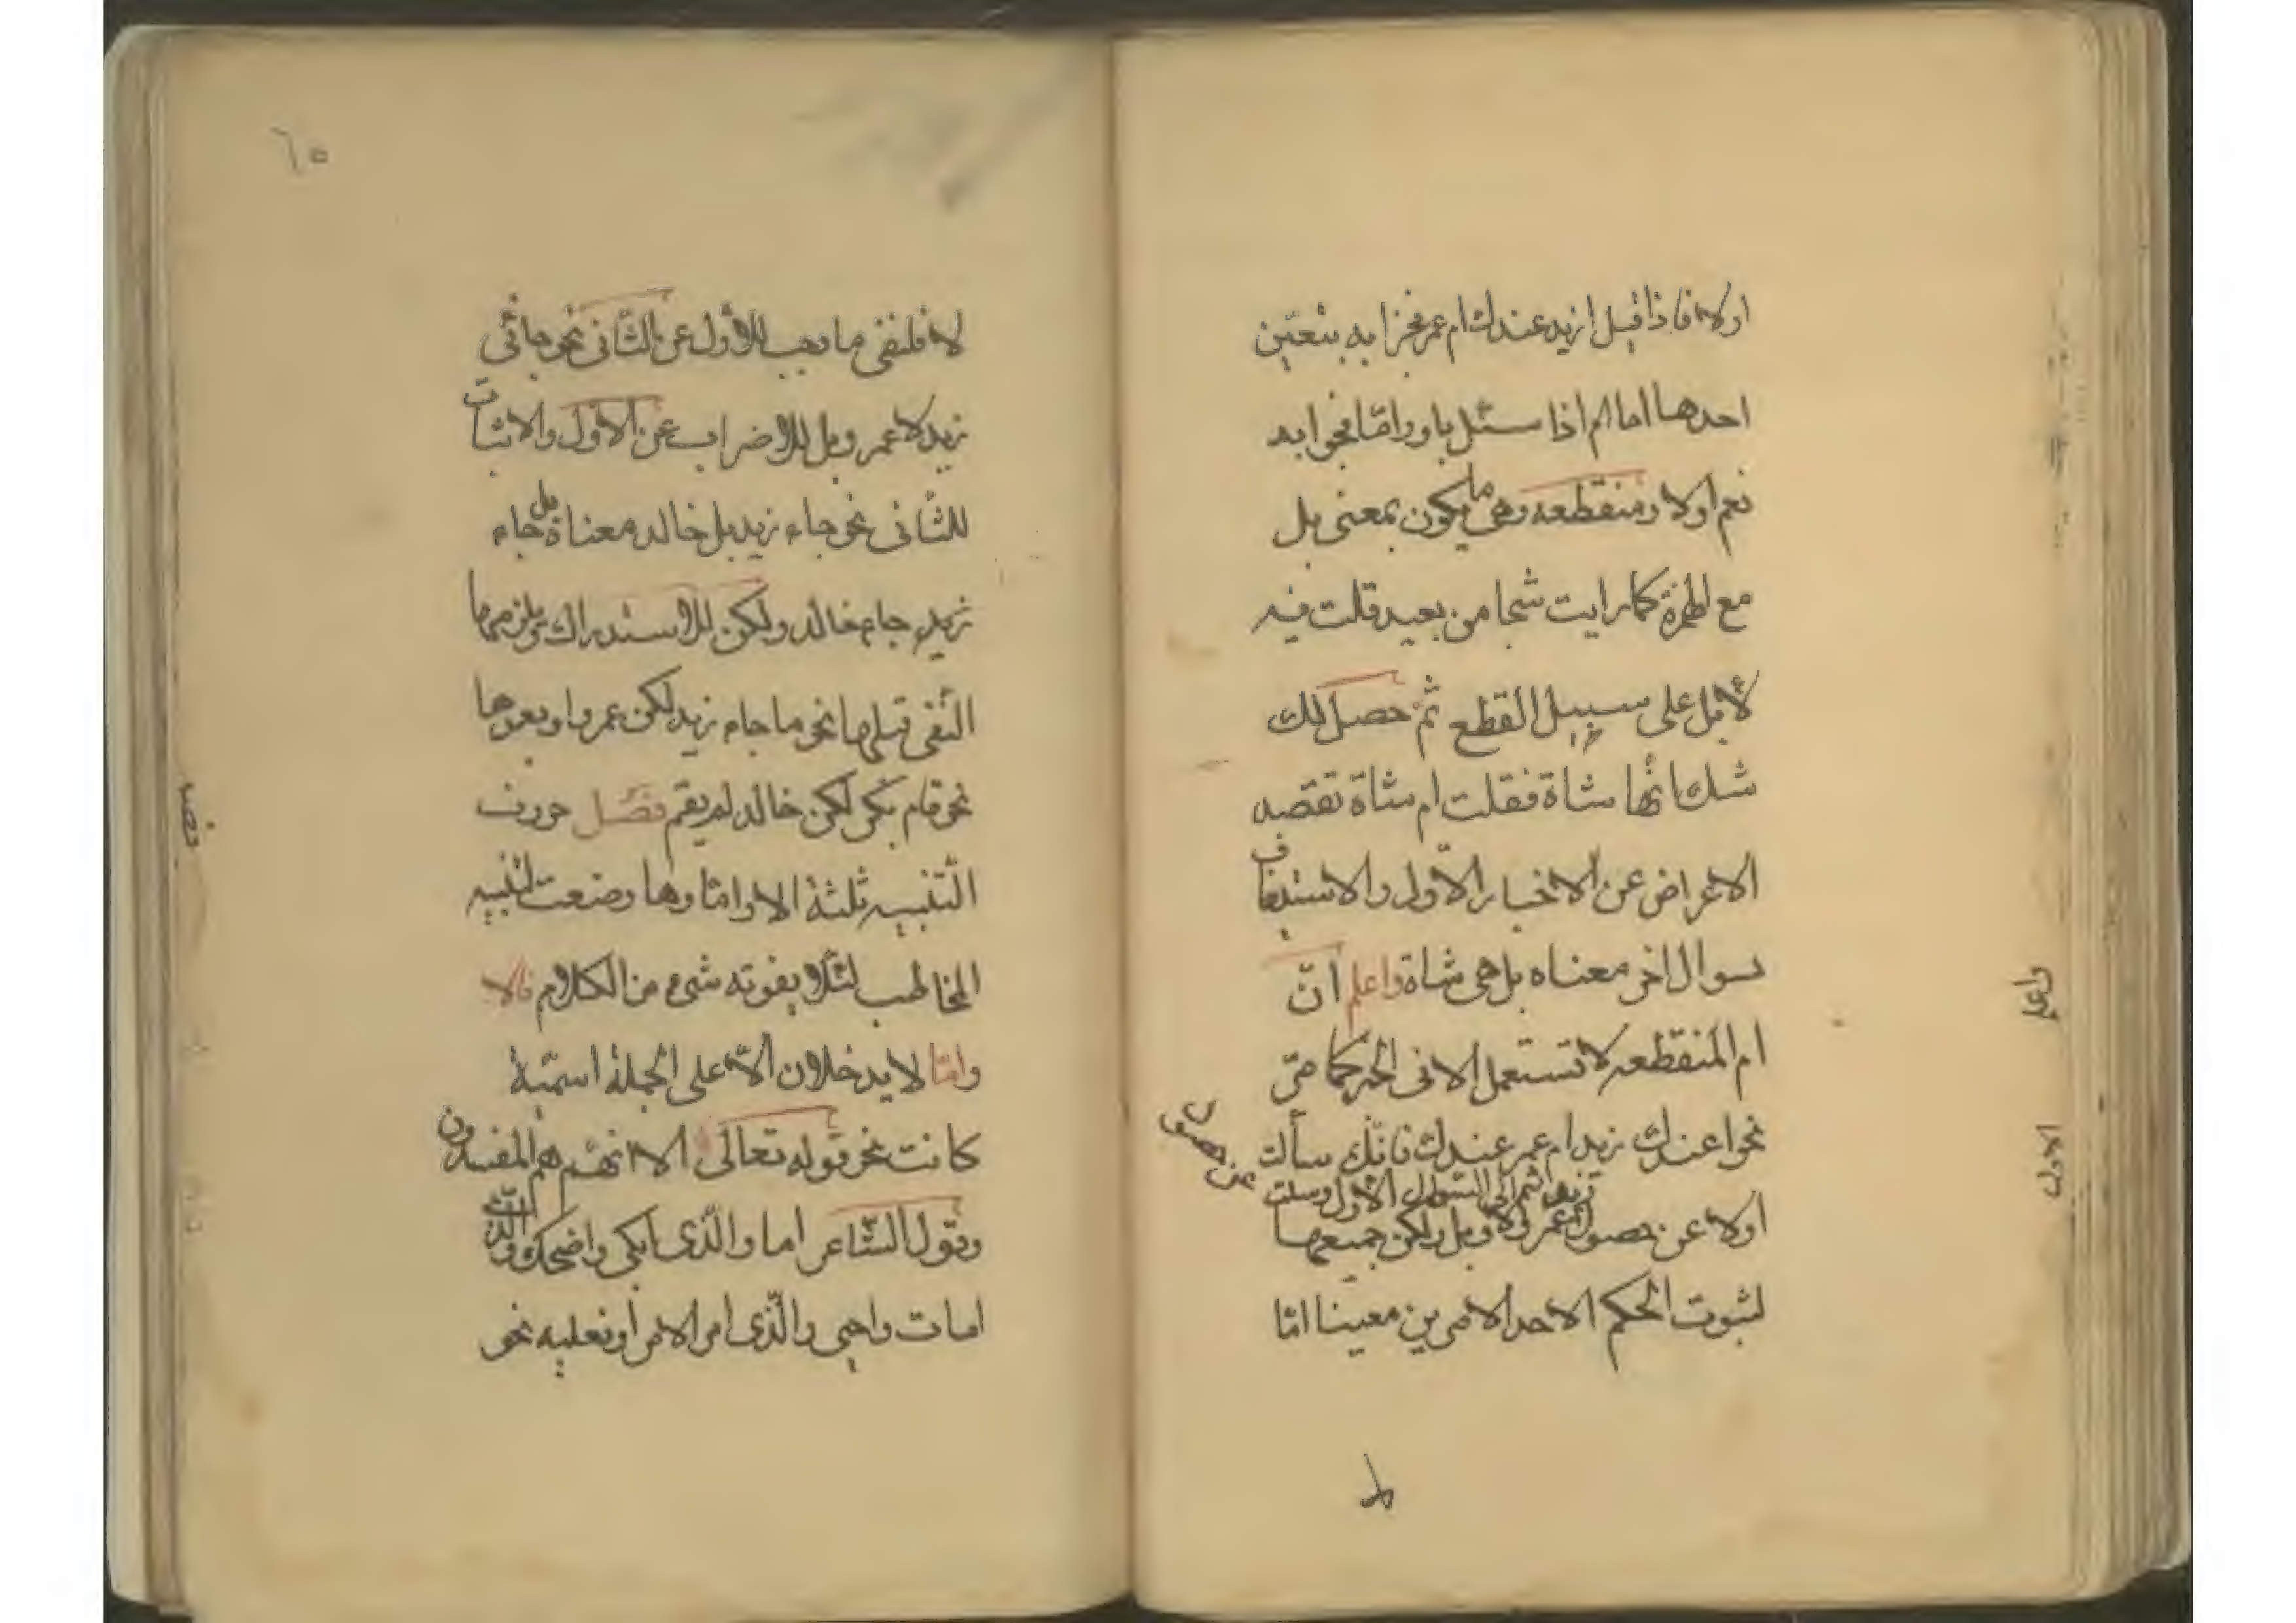 اولا فاذا قيل ازيد عندك ام عمر فجزابه بتعين
احدهما اما ام اذا سئل باو واما فجوابه
نعم اولا ومنقطعه وهى ما يكون بمعنى بل
مع الهمزة كما رايت شبحا من بعيد قلت فيه
لأبل على سبيل القطع ثم حصل لك
شك انها شاة فقلت ام شاة تقصد
الاعراض عن الاخبار الاول والاستيفاف
بسوال اخر معناه بل هى شاة واعلم انّ
ام المنقطعه لا تستعمل الا فى الخبر كما مرّ
نحو اعندك زيد ام عمر عندك فانّك سألت
اولا عن حصول زيد ثم الى السوال الاول وسلت عن حصول
عمر ولا وبل ولكن جميعها
لثبوت الحكم الاحد الامرين معينا امّا
واعلم
الاول
٦٥
لا فلنفى ما وجب للاول عن الثّانى نحو جائنى
زيد لا عمر وبل للاضراب عن الاول والاثبات
للثّانى نحو جاء زيد بل خالد معناه بل جاء
زيد جاء خالد ولكن للاستدراك يلزمها
النّفى قبلها نحو ما جاء زيد لكن عمر واو بعدها
نحو قام بكر لكن خالد لم يقم فصل حروف
التّنبيه ثلثة الا واما وها وضعت لتنبيه
المخاطب لئلا يفوته شىء من الكلام فالا
وامّا لا يدخلان الاّ على الجملة اسميّة
كانت نحو قوله تعالى الا انهم هم المفسدون
وقول الشاعر اما والّذى ابكى واضحك والّذى
امات واحيى والّذى امر الامر او فعليه نحو
فصل